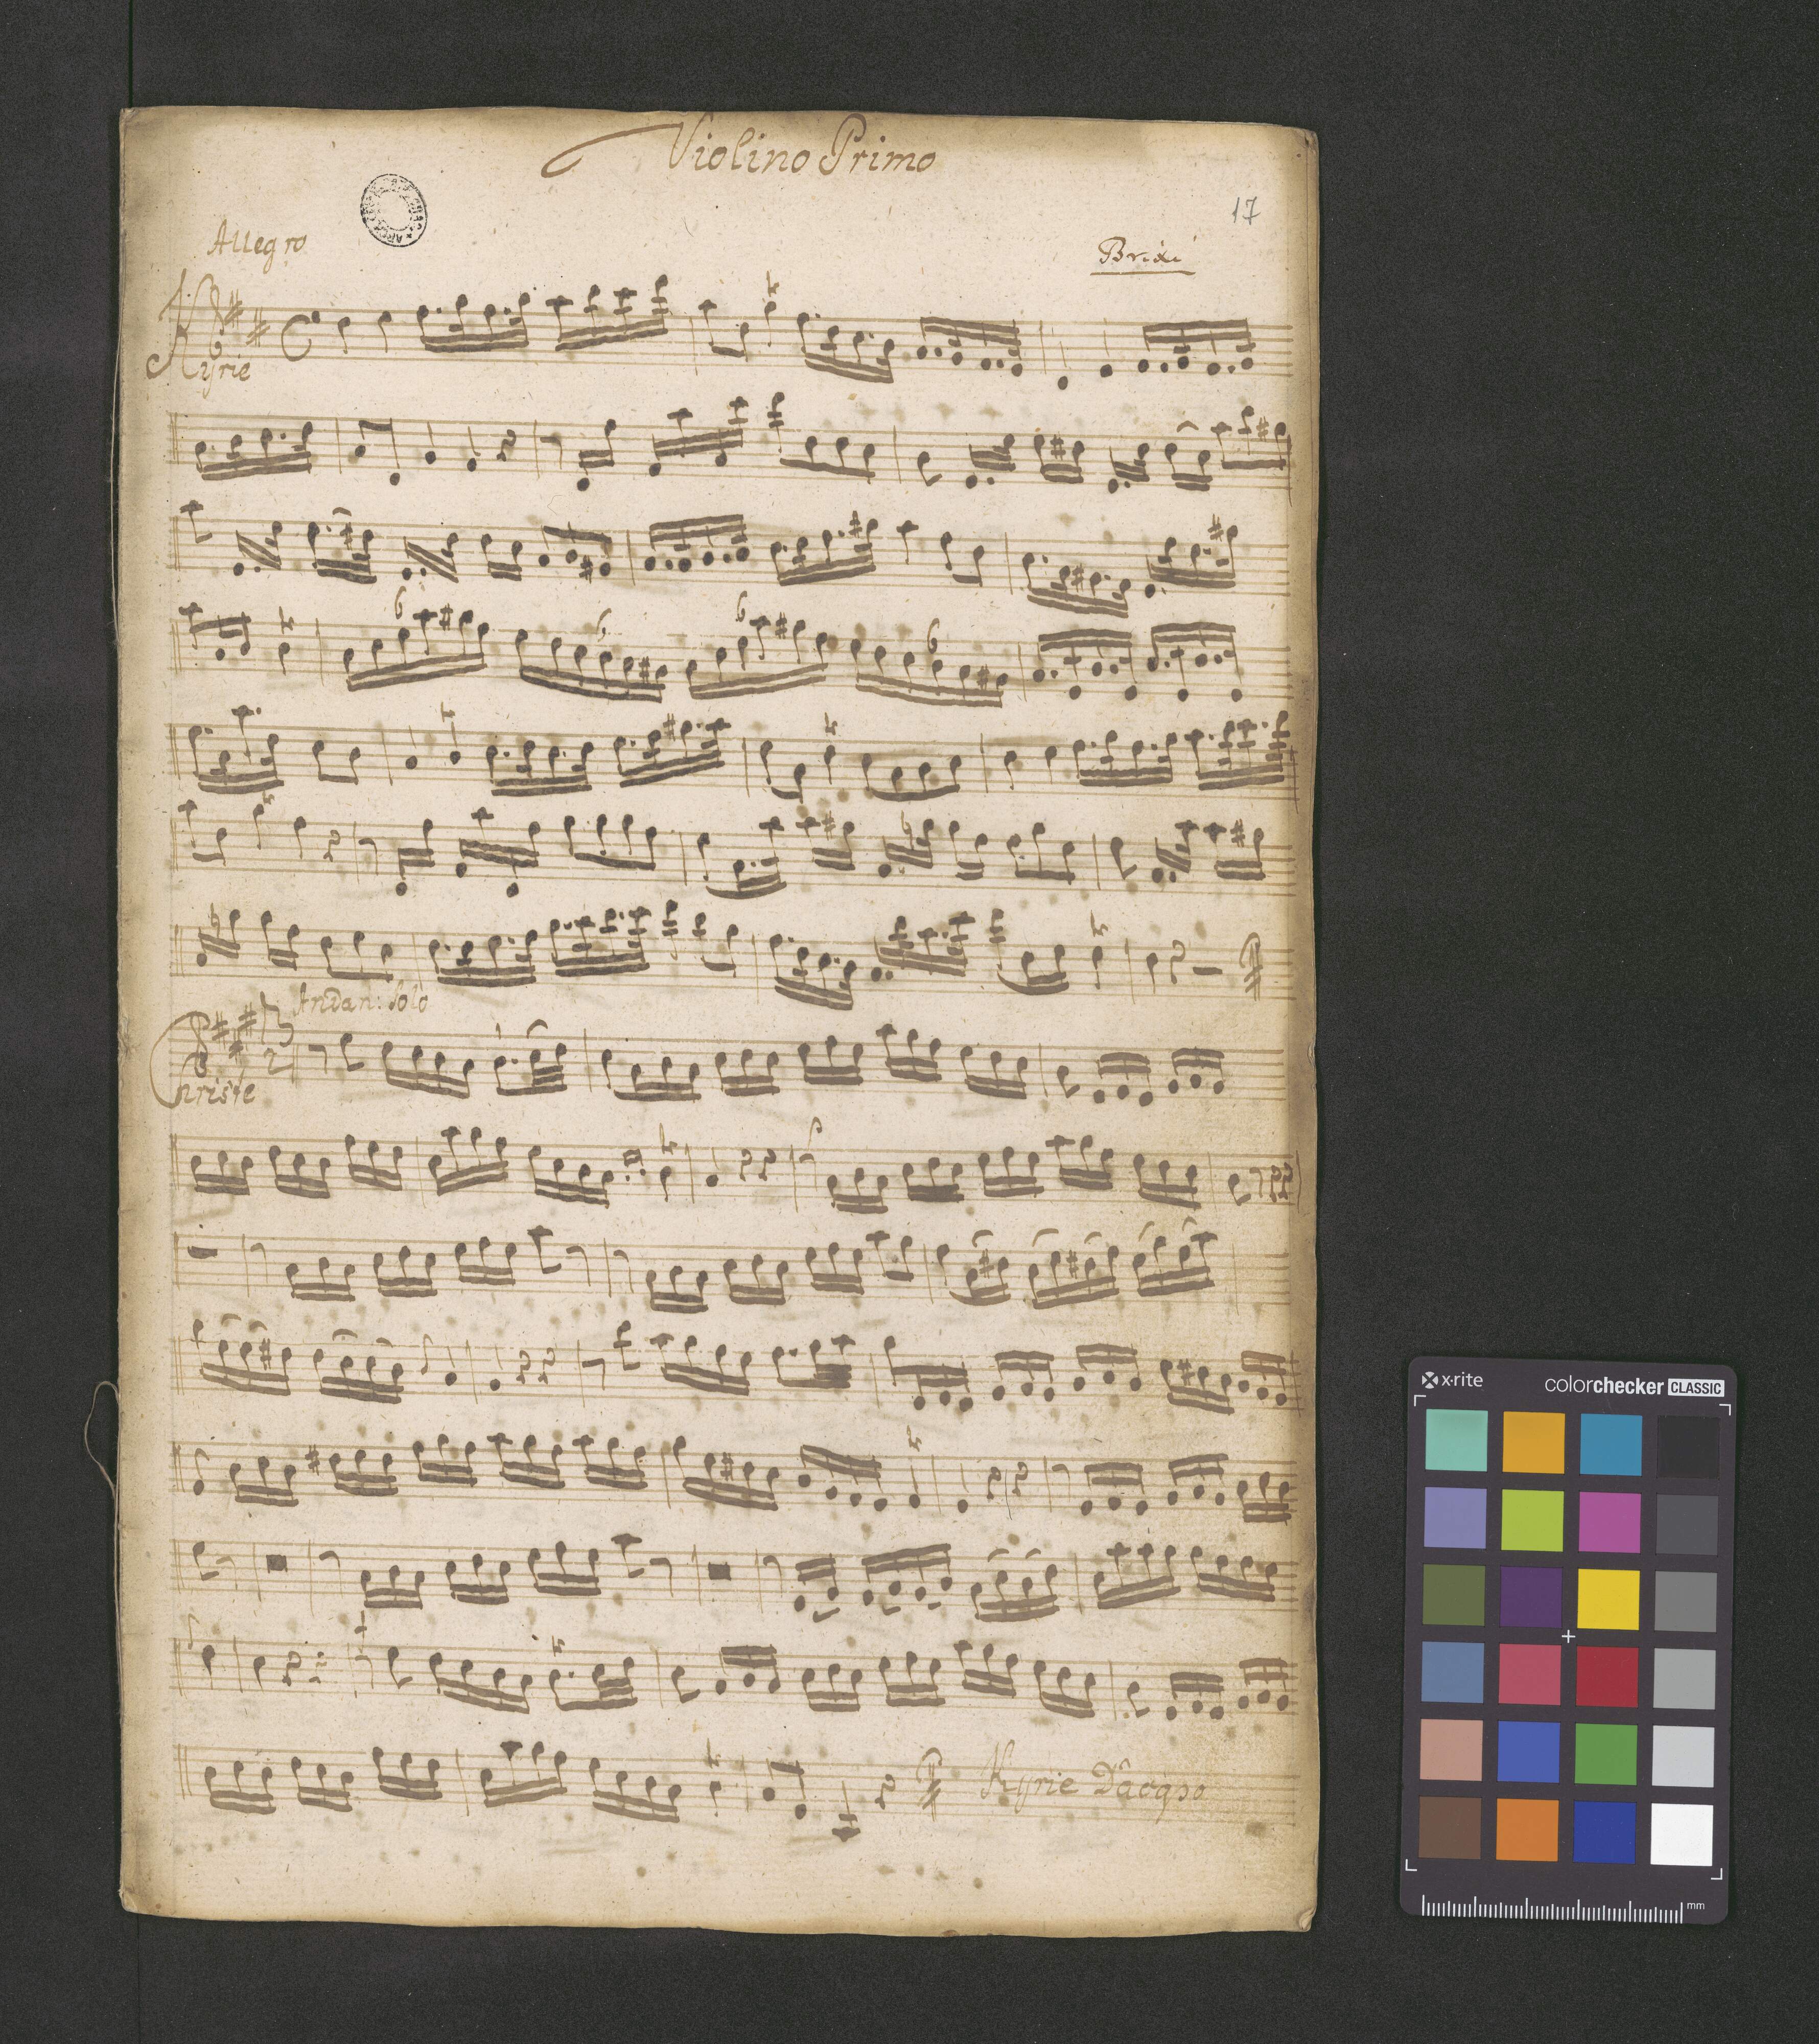 Violino Primo
17
Allegro
Brixi
Kyrie
6
6
6
6
Andan: Solo
Christe
Kyrie
x-rite
colorchecker CLASSIC
mm